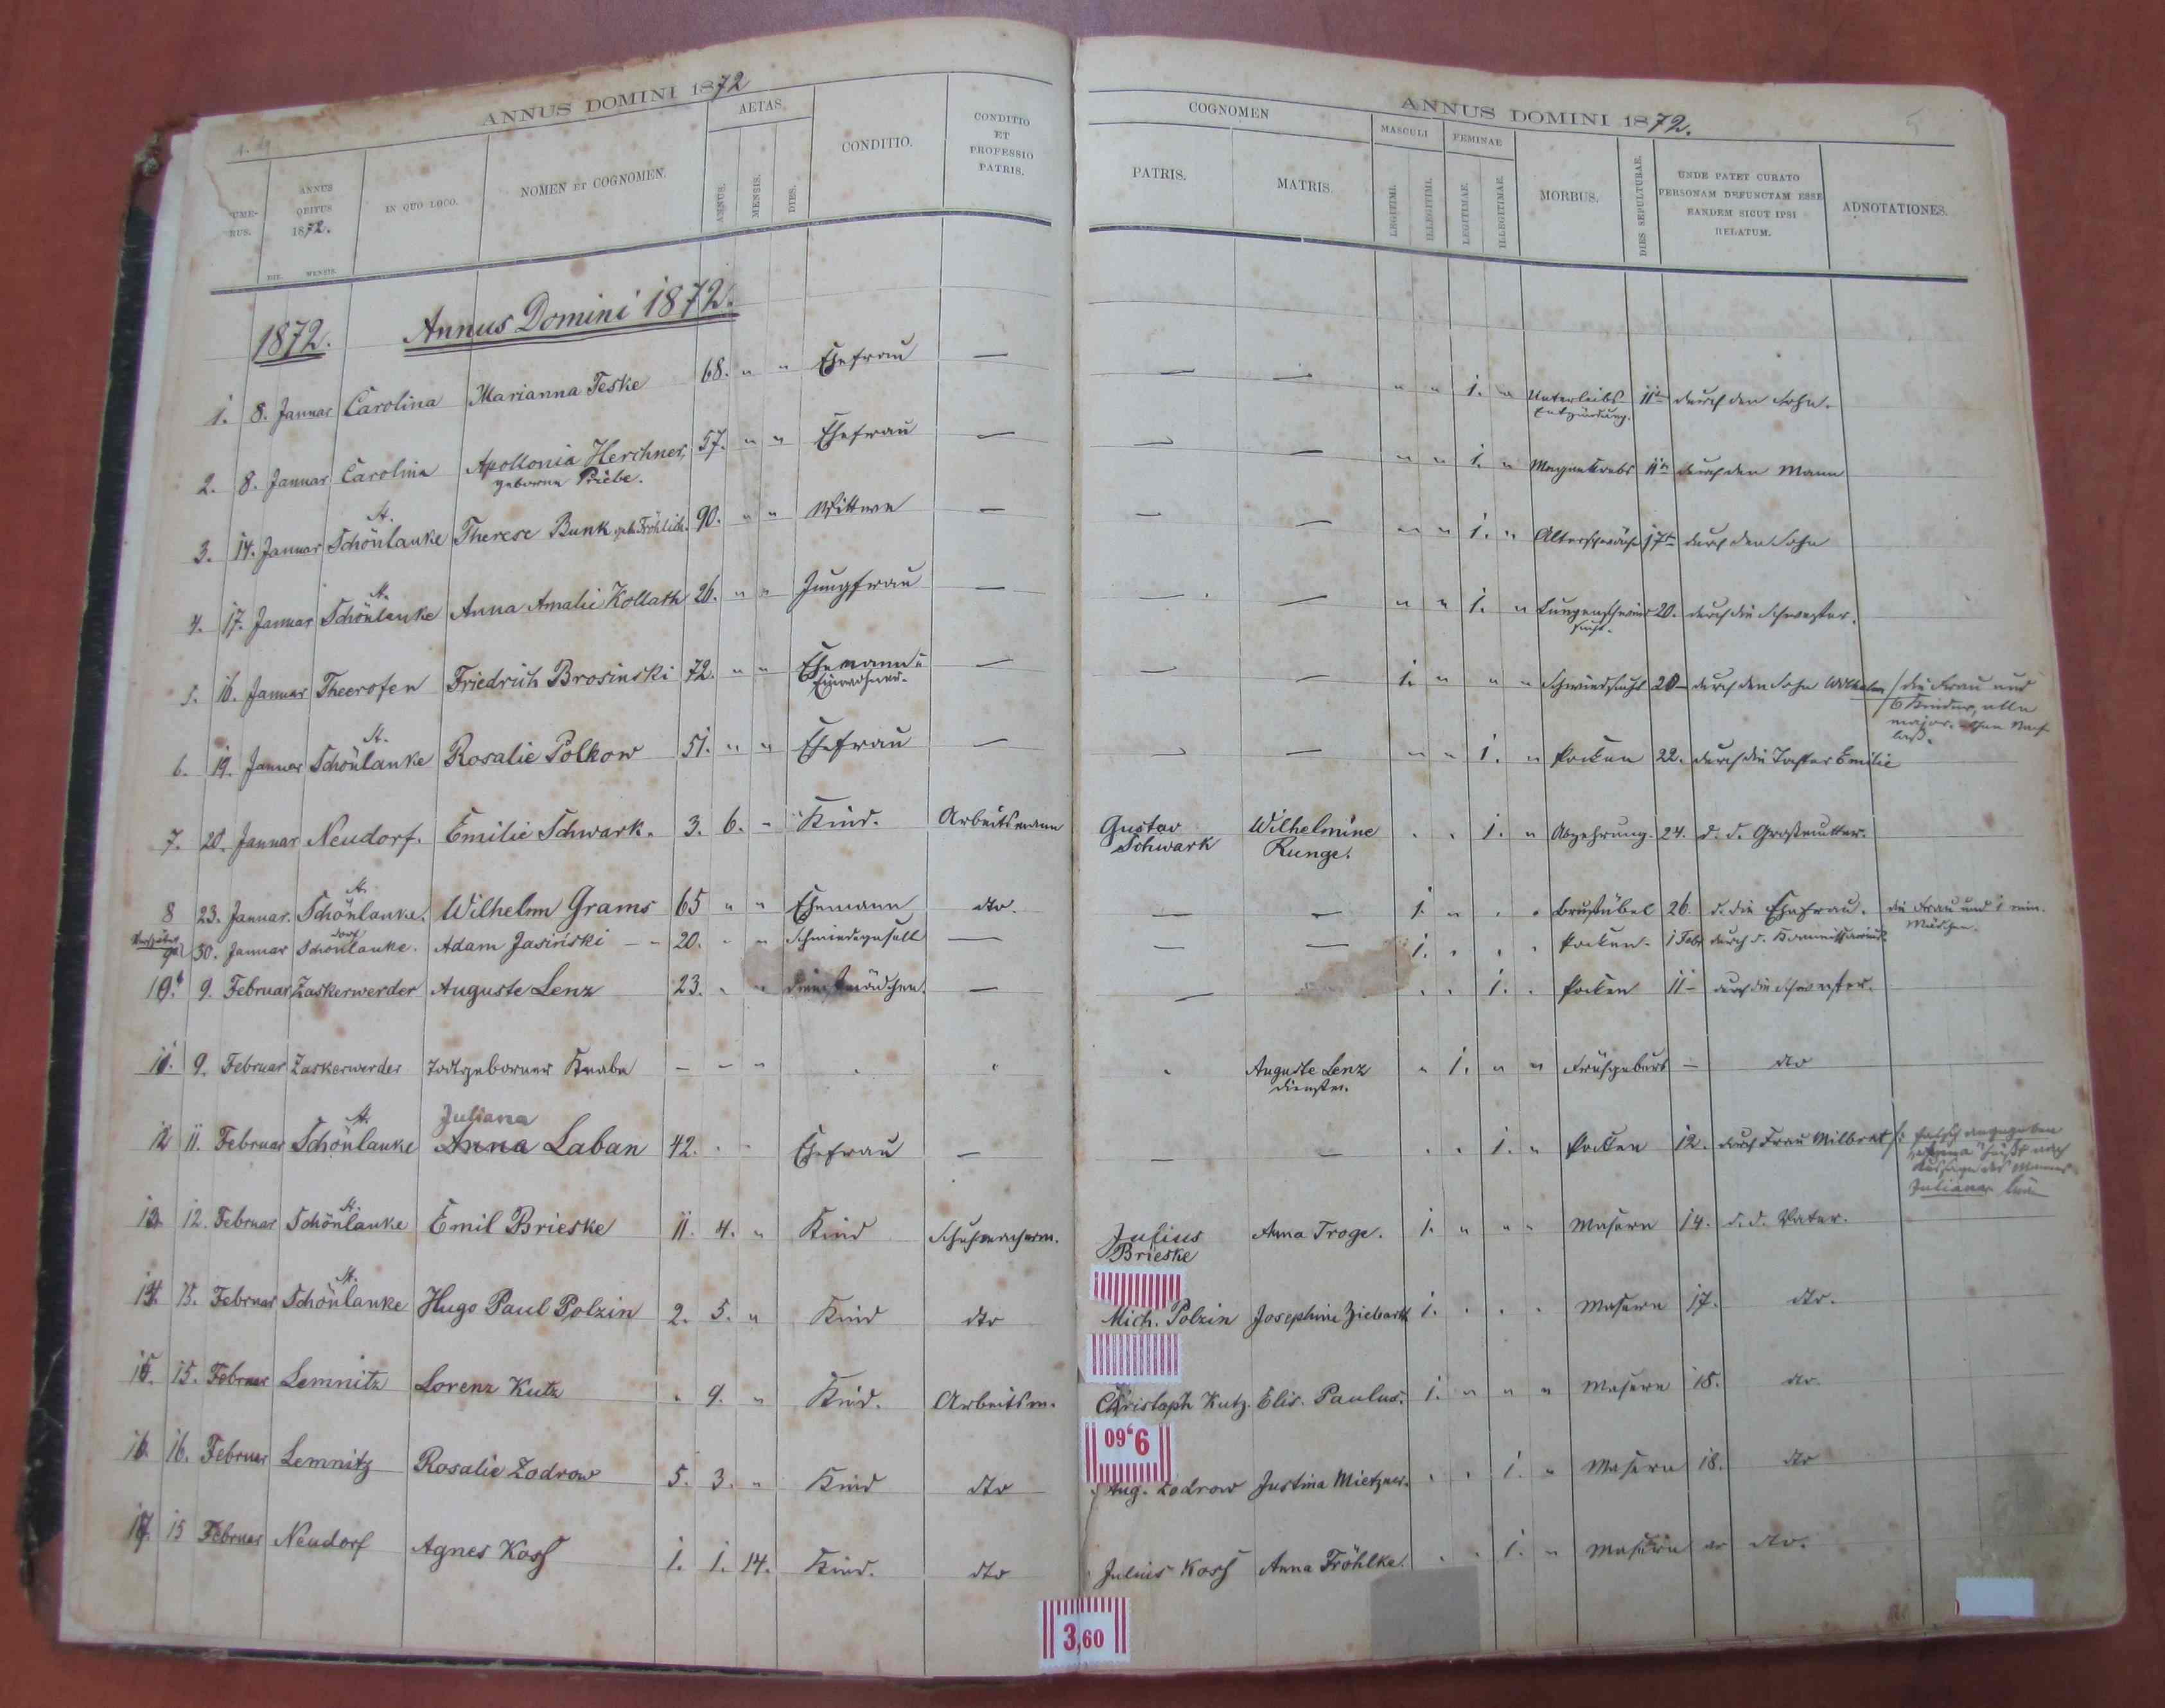 ANNUS DOMINI 1872
NUMERUS.
ANNUS OBITUS 1872.
DIE. MENSIS.
IN QUO LOCO.
NOMEN ET COGNOMEN.
AETAS.
ANNUS.
MENSIS.
DIES.
CONDITIO.
CONDITIO ET PROFESSIO PATRIS.
ANNUS DOMINI 1872.
COGNOMEN
PATRIS.
MATRIS.
MASCULI
LEGITIMI.
ILLEGITIMI.
FEMINAE
LEGITIMAE.
ILLEGITIMAE.
MORBUS.
DIES SEPULTURAE.
UNDE PATET CURATO
PERSONAM DEFUNCTAM ESSE
EANDEM SICUT IPSI
RELATUM.
ADNOTATIONES.
5
1872. Annus Domini 1872.
1. 8. Januar Carolina Marianna Teske 68. " " Ehefrau — — — " " 1. " Unterleibs 11 durch den Sohn.
Entzündung.
2. 8. Januar Carolina Apollonia Herchner, 57. " " Ehefrau — — — " " 1. " Magenkrebs 11 durch den Mann
geborne Priebe.
3. 14. Januar St. Schönlanke Therese Bunk geb. Fröhlich. 90. " " Wittwe — — — " " 1. " Altersschwäche 17 durch den Sohn
4. 17. Januar St. Schönlanke Anna Amalie Kollath 26. " " Jungfrau — — — " " 1. " Lungenschwind 20. durch die Schwester.
sucht.
5. 16. Januar Theerofen Friedrich Brosinski 72. " " Ehemann u — — — 1. " " " Schwindsucht 20 durch den Sohn Wilhelm / die Frau und
Einwohner. 6 Kinder, alle
major. ohne Nach
laß.
6. 19. Januar St. Schönlanke Rosalie Polkow 51. " " Ehefrau — — — " " 1. " Pocken 22. durch die Tochter Emilie
7. 20. Januar Neudorf. Emilie Schwark. 3. 6. " Kind. Arbeitsmann Gustav Wilhelmine . . 1. " Abzehrung. 24. d. d. Großmutter.
Schwark Runge.
8 23. Januar. St. Schönlanke. Wilhelm Grams 65 " " Ehemann dto. — — 1. " . . Brustübel 26. d. die Ehefrau. die Frau und 1 min.
Mädchen.
9 30. Januar Dorf Schönlanke. Adam Jasiński — " 20. " " Schmiedegesell — — — 1. . . . Pocken. 1 Febr durch d.
10. 9. Februar Zaskerwerder Auguste Lenz 23. " " Dienstmädchen — — . . 1. . Pocken 11 durch die Schwester.
11. 9. Februar Zaskerwerder Todtgeborner Knabe — — " . . . Auguste Lenz " 1. " " Frühgeburt — dto
Dienstm.
Juliana
12 11. Februar St. Schönlanke Anna Laban 42. . . Ehefrau — — — . . 1. " Pocken 12. durch Frau Milbrat /: falsch angegeben
"Anna" heißt nach
Aussage des Mannes
Juliana
13. 12. Februar St. Schönlanke Emil Brieske 11. 4. " Kind Schuhmacherm. Julius Anna Troge. 1. " " " Masern 14. d. d. Vater.
Brieske
14. 15. Februar St. Schönlanke Hugo Paul Polzin 2. 5. " Kind dto Mich. Polzin Josephine Ziebarth 1. . . . Masern 17. dto.
15. 15. Februar Lemnitz Lorenz Kutz . 9. " Kind. Arbeitsm. Christoph Kutz. Elis. Paulus. 1. " " " Masern 18. dto.
16. 16. Februar Lemnitz Rosalie Zodrow 5. 3. " Kind dto Aug. Zodrow Justina Mietzner. . . 1. " Masern 18. dto
17. 15 Februar Neudorf Agnes Koss 1. 1. 14. Kind. dto Julius Koss Anna Fröhlke. . . 1. " Masern dto.
9,60
3,60